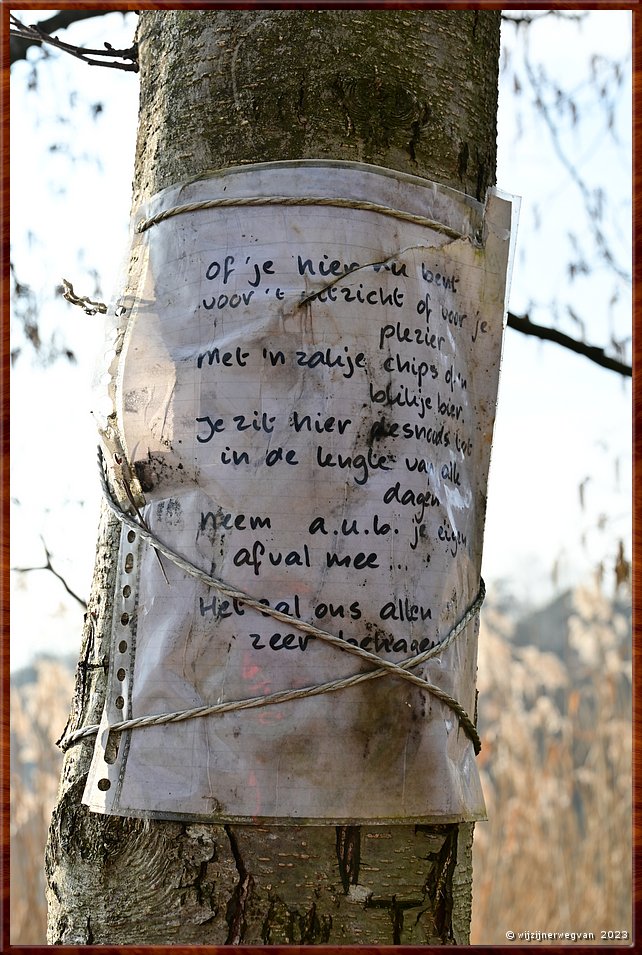 Of 'je hier nu bent
voor 't uitzicht of voor je
plezier
Met 'n zakje chips of 'n
blikje bier.
Je zit hier desnoods tot
in de lengte van alle
dagen
neem a.u.b. je eigen
afval mee...
Het zal ons allen
zeer behagen
© wijzijnerwegvan 2023